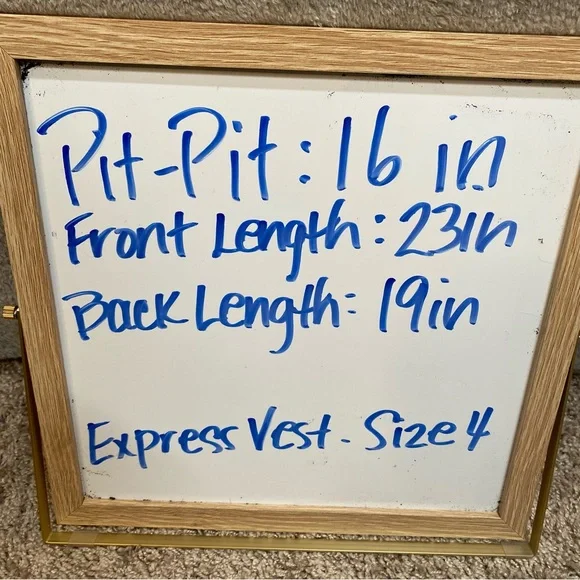 Pit-Pit: 16 in
Front Length: 23in
Back Length: 19in
Express Vest. Size 4